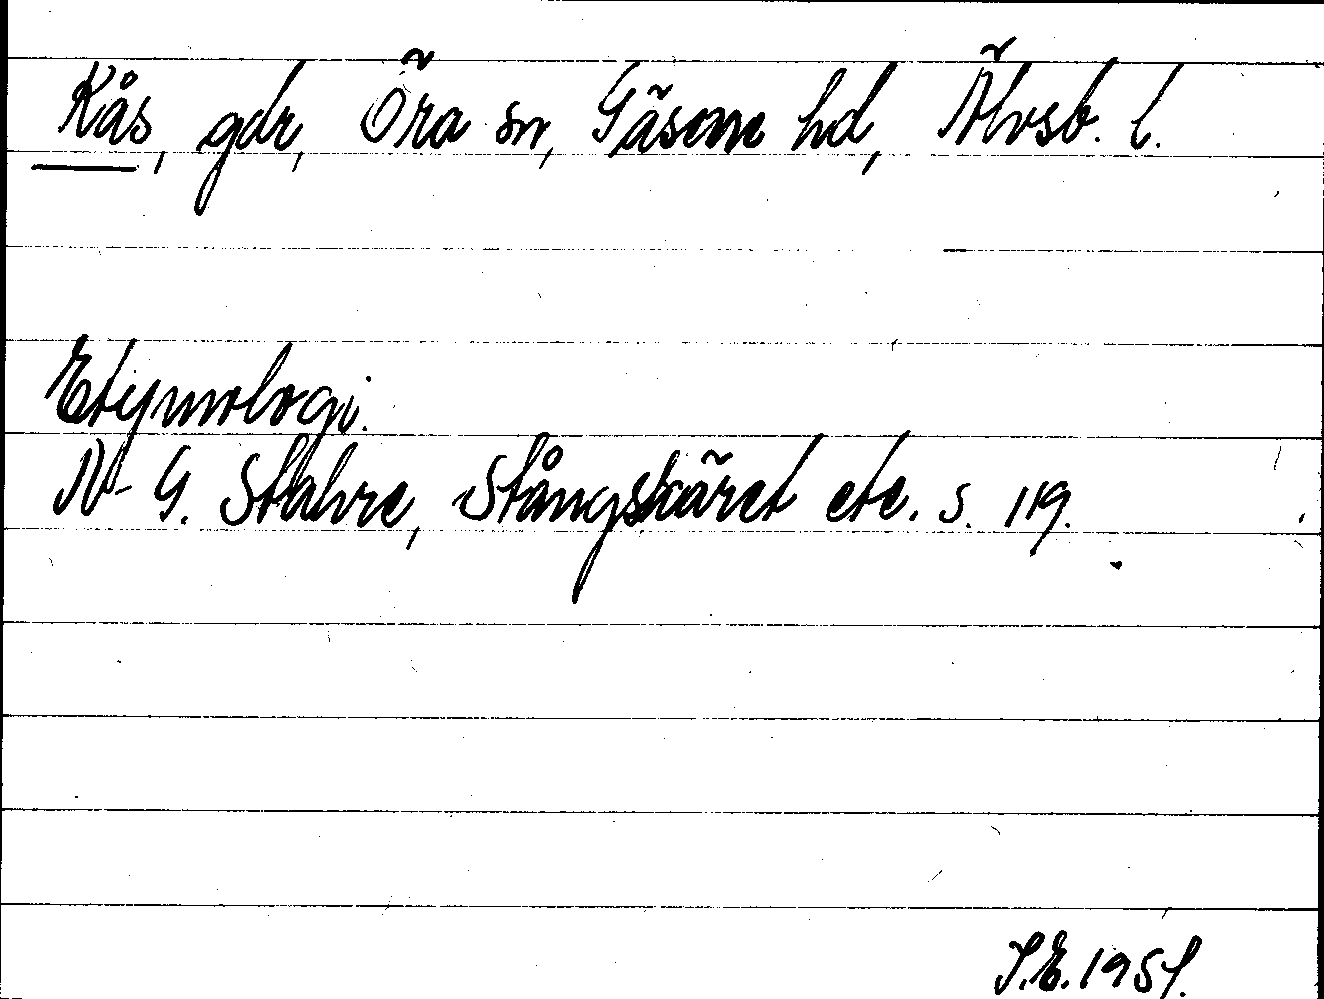 Kås, gdr, Öra sn, Gäsene hd, Älvsb. l.
Etymologi.
N-G. Stahre, Stångskäret etc. s. 119.
S.E. 1951.